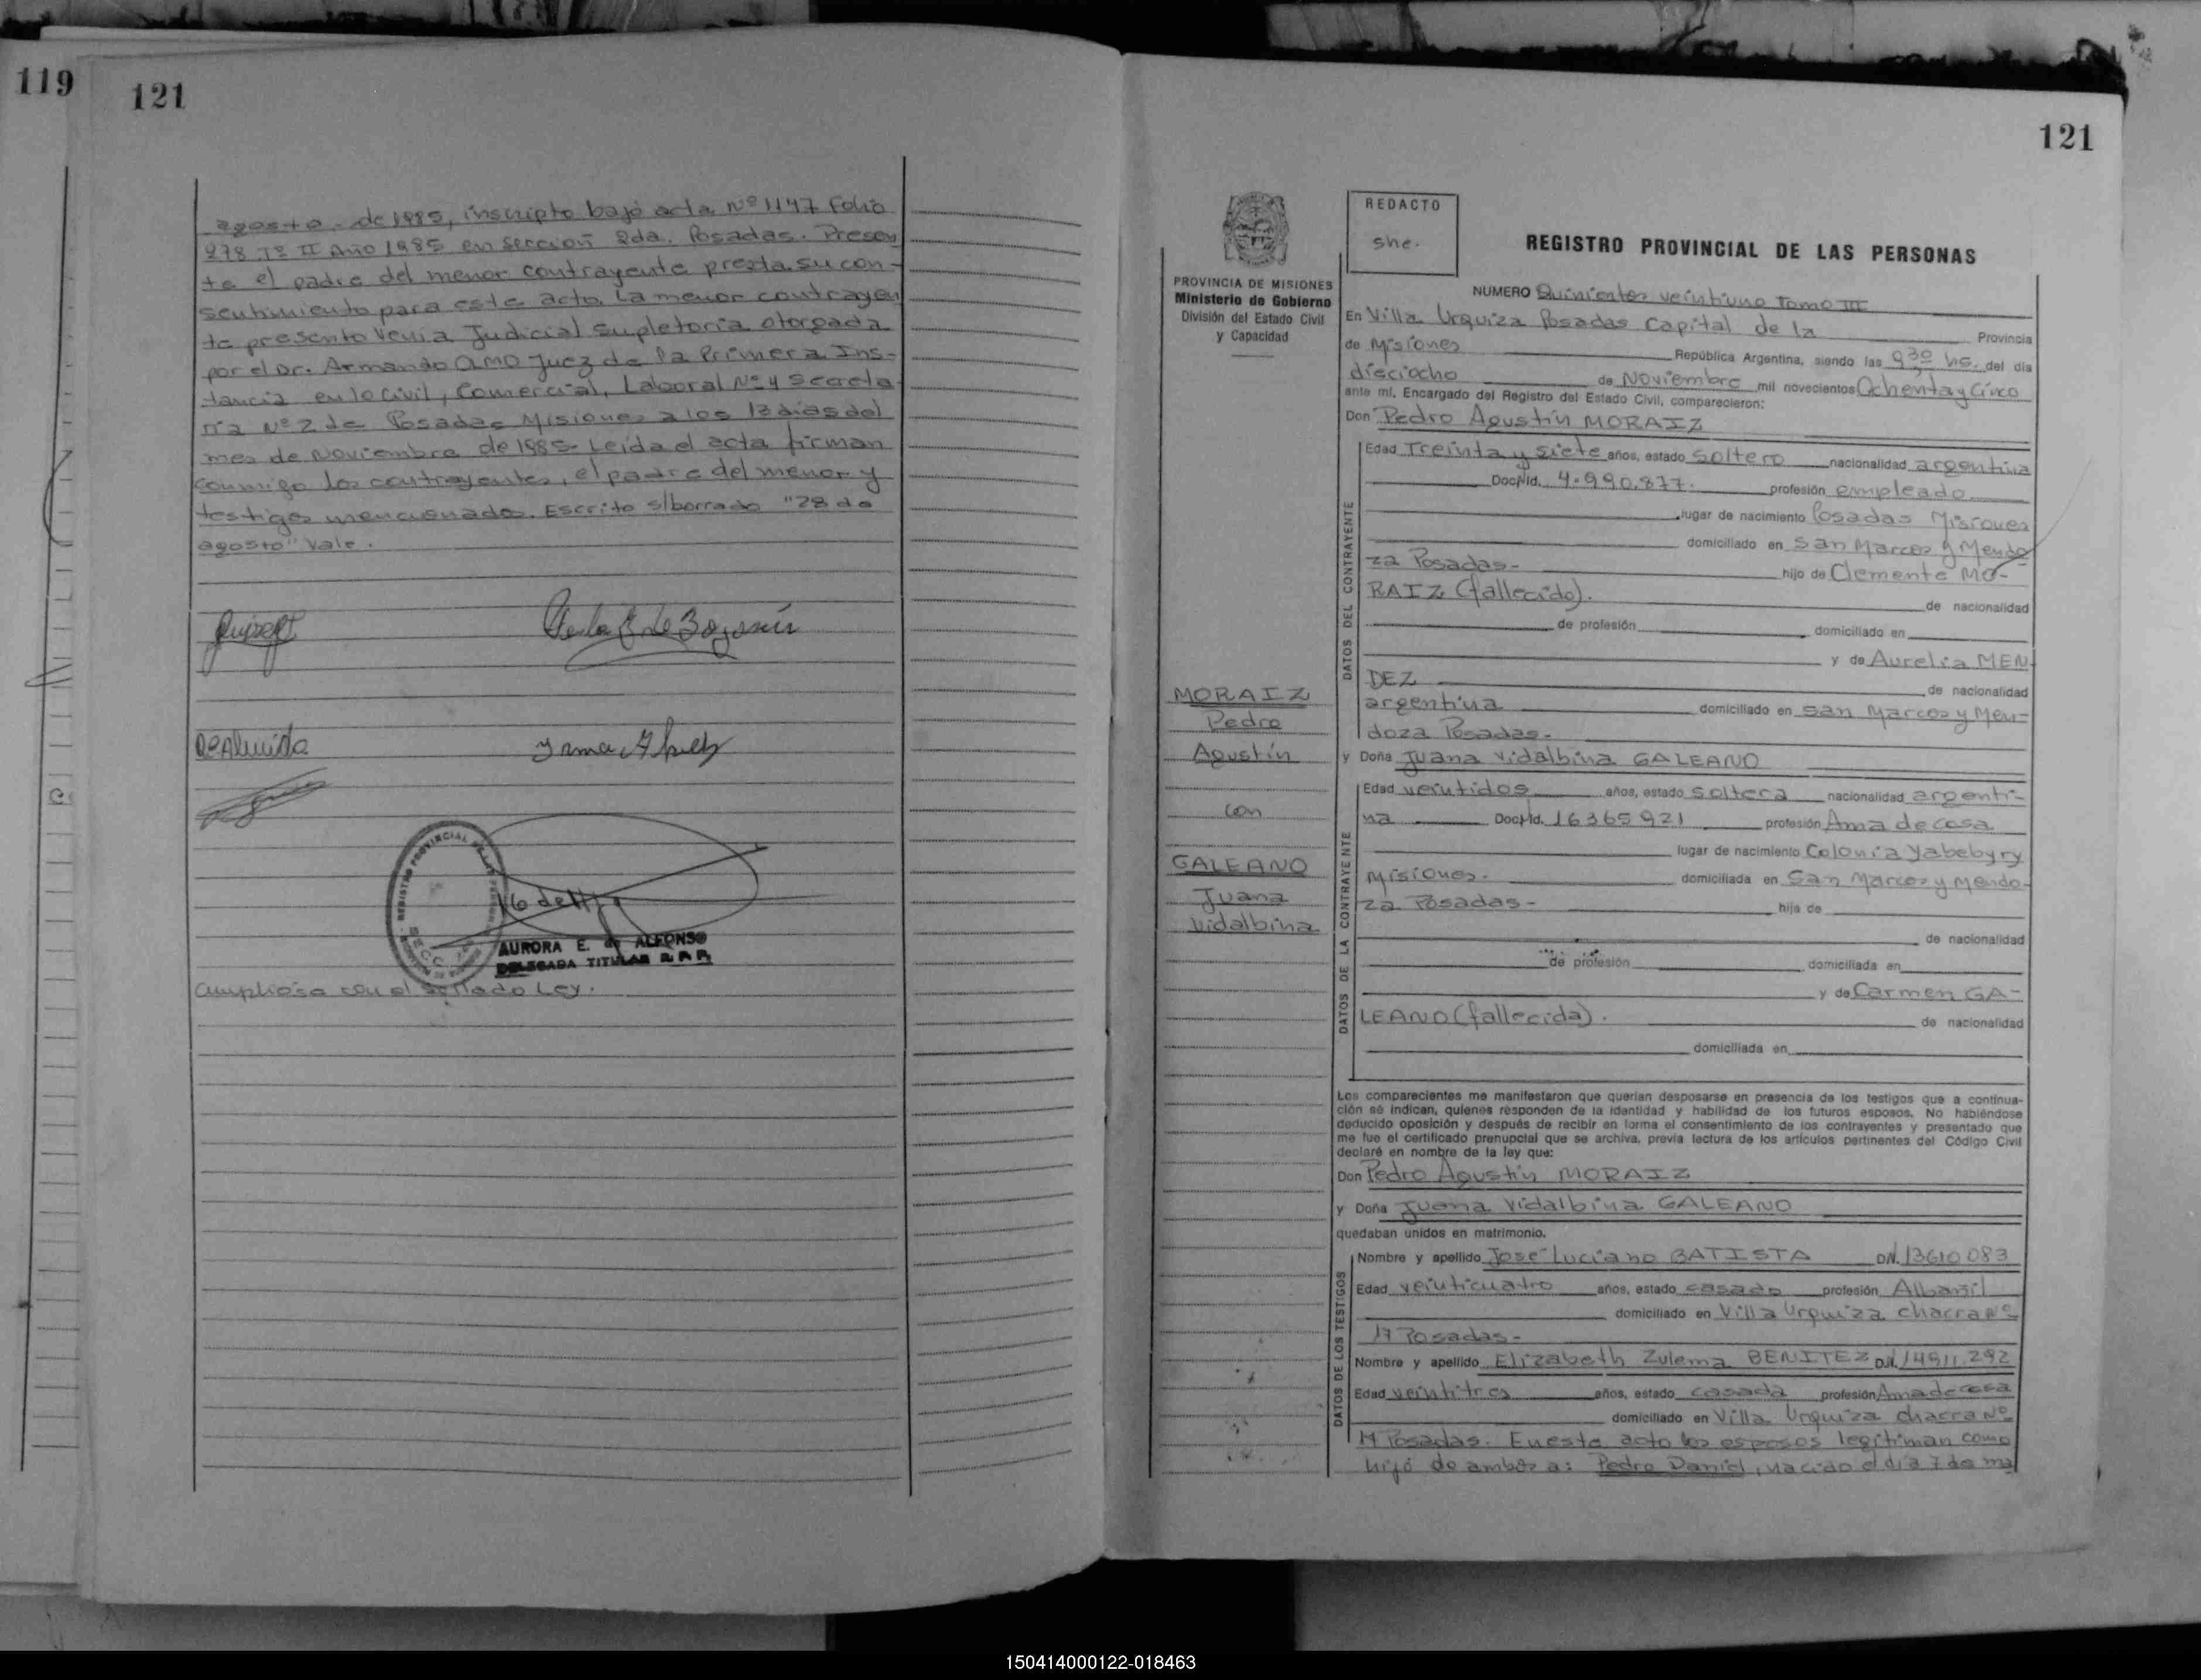 119
121
agosto - de 1985, inscripto bajo acta Nº 1147 Folio
278 Tº II Año 1985 en sección 2da. Posadas. Presen
te el padre del menor contrayente presta su con-
sentimiento para este acto. La menor contrayen
te presento Venia Judicial supletoria otorgada
por el Dr. Armando AMO Juez de la Primera Ins-
tancia en lo Civil, Comercial, Laboral Nº 4 Secreta
ría Nº 2 de Posadas Misiones a los 13 días del
mes de Noviembre de 1985- Leída el acta firman
conmigo los contrayentes, el padre del menor y
testigos mencionados. Escrito s/borrado "28 de
agosto" Vale.
AURORA E. de ALFONSO
DELEGADA TITULAR R. P. P.
Ampliosa con el Sellado Ley.
121
REDACTO
she.
PROVINCIA DE MISIONES
Ministerio de Gobierno
División del Estado Civil
y Capacidad
REGISTRO PROVINCIAL DE LAS PERSONAS
NUMERO Quinientos veintiuno Tomo III
En Villa Urquiza Posadas Capital de la Provincia
de Misiones República Argentina, siendo las 9 30 hs. del día
dieciocho de Noviembre mil novecientos Ochenta y Cinco
ante mí, Encargado del Registro del Estado Civil, comparecieron:
Don Pedro Agustín MORAIZ
DATOS DEL CONTRAYENTE
Edad Treinta y siete años, estado soltero nacionalidad argentina
Doc. Nd. 4.990.877. profesión empleado
lugar de nacimiento Posadas Misiones
domiciliado en San Marcos y Mendo
za Posadas- hijo de Clemente MO-
RAIZ (fallecido). de nacionalidad
de profesión domiciliado en
y de Aurelia MEN
DEZ de nacionalidad
argentina domiciliado en San Marcos y Men-
doza Posadas-
MORAIZ
Pedro
Agustín
con
GALEANO
Juana
Vidalbina
y Doña Juana Vidalbina GALEANO
DATOS DE LA CONTRAYENTE
Edad veintidos años, estado soltera nacionalidad argenti-
na Doc. Nd. 16365921 profesión Ama de casa
lugar de nacimiento Colonia Yabebyry
Misiones. domiciliada en San Marcos y Mendo-
za Posadas- hija de
de nacionalidad
de profesión domiciliada en
y de Carmen GA-
LEANO (fallecida). de nacionalidad
domiciliada en
Los comparecientes me manifestaron que querían desposarse en presencia de los testigos que a continua-
ción se indican, quienes responden de la identidad y habilidad de los futuros esposos. No habiéndose
deducido oposición y después de recibir en forma el consentimiento de los contrayentes y presentado que
me fue el certificado prenupcial que se archiva, previa lectura de los artículos pertinentes del Código Civil
declaré en nombre de la ley que:
Don Pedro Agustín MORAIZ
y Doña Juana Vidalbina GALEANO
quedaban unidos en matrimonio.
DATOS DE LOS TESTIGOS
Nombre y apellido José Luciano BATISTA DN. 13610083
Edad veinticuatro años, estado casado profesión Albañil
domiciliado en Villa Urquiza chacra Nº
17 Posadas-
Nombre y apellido Elizabeth Zulema BENITEZ DN. 14911.292
Edad veintitres años, estado casada profesión Ama de casa
domiciliado en Villa Urquiza chacra Nº
17 Posadas. En este acto los esposos legitiman como
hijo de ambos a: Pedro Daniel, nacido el día 7 de ma
150414000122-018463